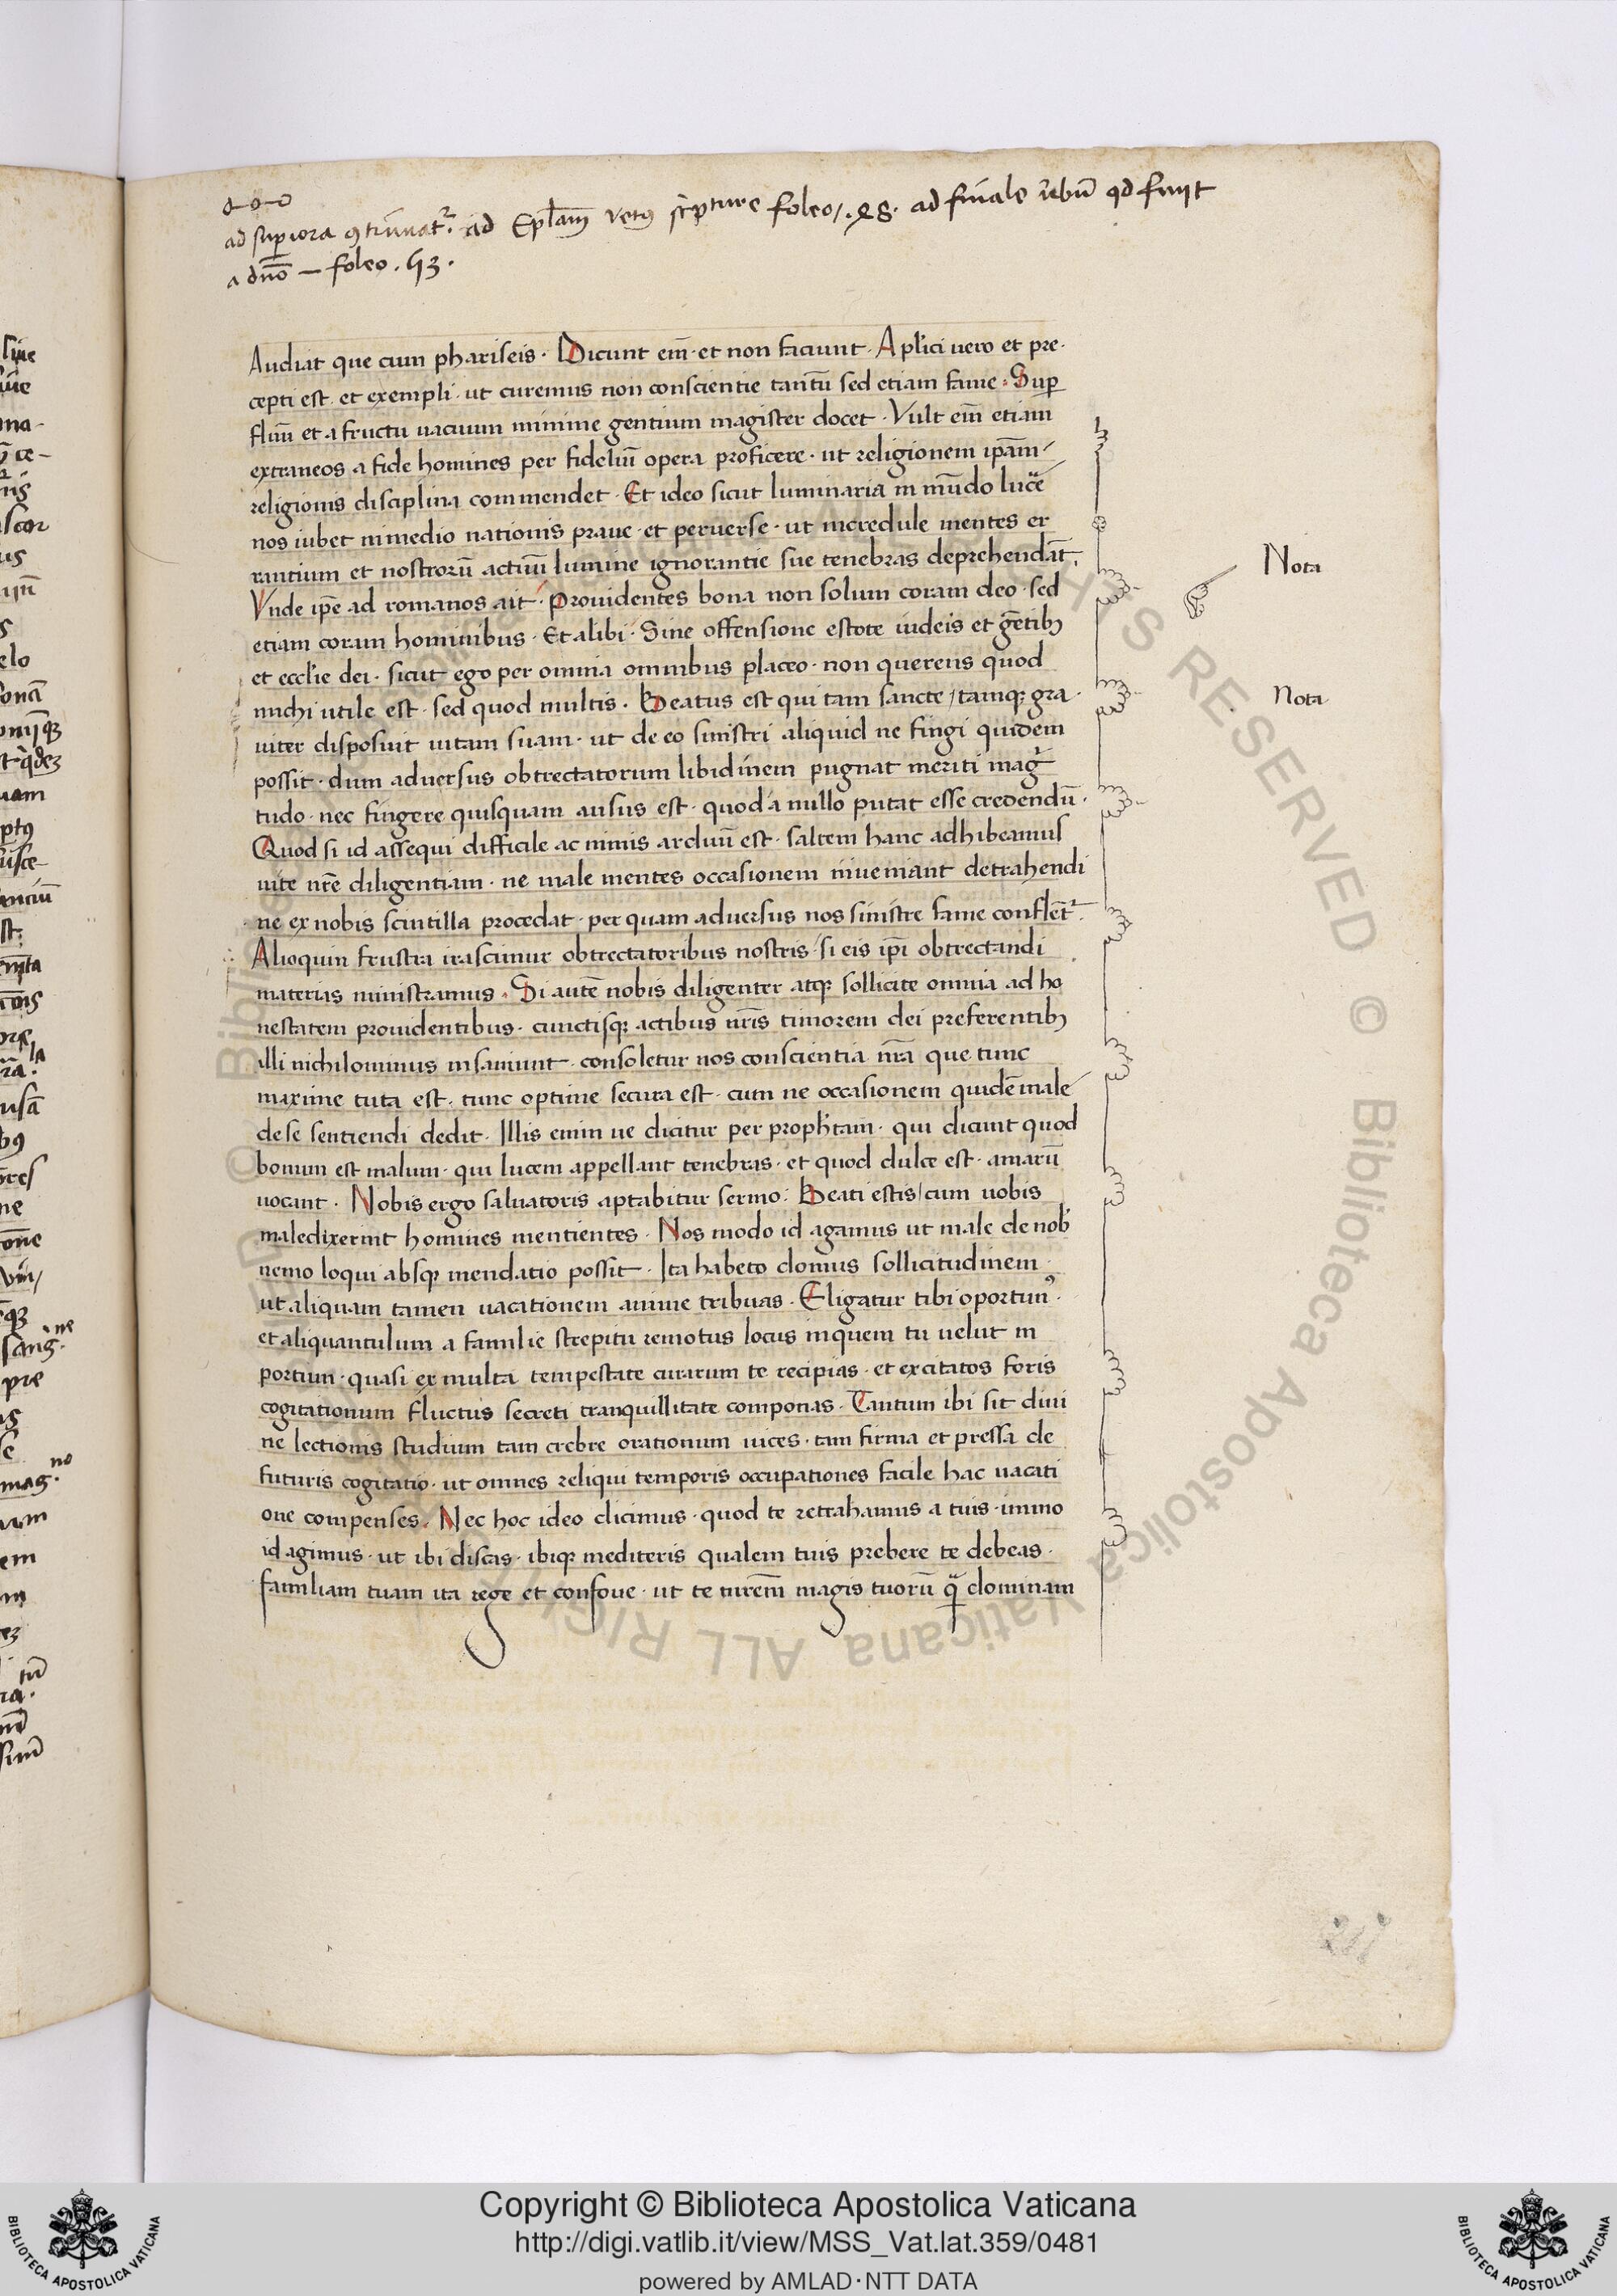 ad superiora ꝯtinuat᷑. ad Epl̄am vetꝰ sc̄pture foleo. 28. ad finale v̄bū qd finit
a dn̄o — foleo. 43.
Audiat que cum phariseis · Dicunt em̄ · et non faciunt · Apl̄ici uero et pre·
cepti est · et exempli · ut curemus non conscientie tantū sed etiam fame · Sup
fluū et a fructu uacuum minime gentium magister docet · Vult em̄ etiam
extraneos a fide homines per fideliū opera proficere · ut religionem ip̄am
religionis disciplina commendet · Et ideo sicut luminaria in mūdo lucē
nos iubet in medio nationis praue · et peruerse · ut incredule mentes er
rantium et nostrorū actuū lumine ignorantie sue tenebras deprehendāt.
Vnde ip̄e ad romanos ait · Prouidentes bona non solum coram deo · sed
etiam coram hominibus · Et alibi · Sine offensione estote iudeis et gētibꝫ
et eccl̄ie dei · sicut ego per omnia omnibus placeo · non querens quod
michi utile est · sed quod multis · Beatus est qui tam sancte / tamqꝫ gra ·
uiter disposuit uitam suam · ut de eo sinistri aliquid ne fingi quidem
possit · dum aduersus obtrectatorum libidinem pugnat meriti mag̅
tudo · nec fingere quisquam ausus est · quod a nullo putat esse credendū ·
Quod si id assequi difficile ac nimis arduū est · saltem hanc adhibeamus
uite nr̄e diligentiam · ne male mentes occasionem inueniant detrahendi
ne ex nobis scintilla procedat · per quam aduersus nos sinistre fame conflēt᷑.
Alioquin frustra irascimur obtrectatoribus nostris / si eis ip̄i obtrectandi
materias ministramus · Si autē nobis diligenter atqꝫ sollicite omnia ad ho
nestatem prouidentibus · cunctisqꝫ actibus nr̄is timorem dei preferentibꝫ
illi nichilominus insaniunt · consoletur nos conscientia nr̄a que tunc
maxime tuta est · tunc optime secura est · cum ne occasionem quidē male
de se sentiendi dedit · Illis enim ue dicitur per proph̄tam · qui dicunt quod
bonum est malum · qui lucem appellant tenebras · et quod dulce est · amarū
uocant · Nobis ergo saluatoris aptabitur sermo : Beati estis / cum uobis
maledixerint homines mentientes · Nos modo id agamus ut male de nob̄
nemo loqui absqꝫ mendatio possit · Ita habeto domus sollicitudinem ·
ut aliquam tamen uacationem anime tribuas · Eligatur tibi oportunꝰ ·
et aliquantulum a familie strepitu remotus locus in quem tu uelut in
portum · quasi ex multa tempestate curarum te recipias · et excitatos foris
cogitationum fluctus secreti tranquillitate componas · Tantum ibi sit diui
ne lectionis studium tam crebre orationum uices · tam firma et pressa de
futuris cogitatio · ut omnes reliqui temporis occupationes facile hac uacati
one compenses · Nec hoc ideo dicimus · quod te retrahamus a tuis · immo
id agimus · ut ibi discas · ibiqꝫ mediteris qualem tuis prebere te debeas ·
familiam tuam ita rege et confoue · ut te m̄rem magis tuorū q̄ dominam
Nota
Nota
Copyright © Biblioteca Apostolica Vaticana
http://digi.vatlib.it/view/MSS_Vat.lat.359/0481
powered by AMLAD·NTT DATA
BIBLIOTECA APOSTOLICA VATICANA
BIBLIOTECA APOSTOLICA VATICANA